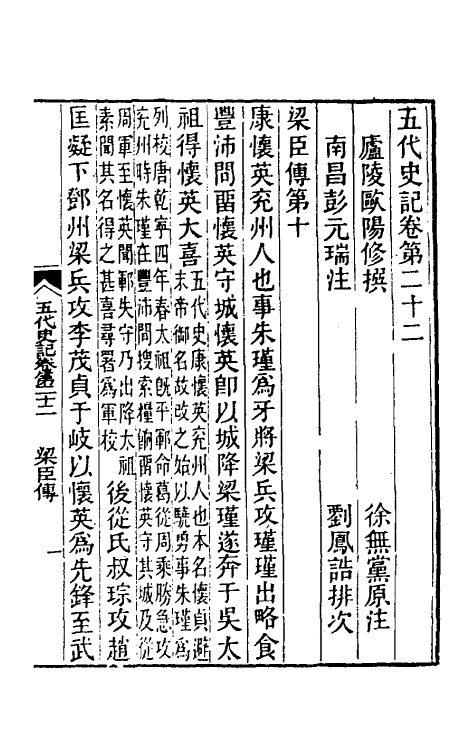 五代史記卷第二十二
廬陵歐陽修撰 徐無黨原注
南昌彭元瑞注 劉鳳誥排次
梁臣傳第十
康懷英兖州人也事朱瑾爲牙將梁兵攻瑾瑾出略食
豐沛間畱懷英守城懷英卽以城降梁瑾遂奔于吳太
祖得懷英大喜
五代史康懷英兖州人也本名懷貞避
末帝御名故改之始以驍勇事朱瑾爲
列校唐乾寧四年春太祖旣平鄆命葛從周乘勝急攻
兖州時朱瑾在豐沛間搜索糧餉畱懷英守其城及從
周軍至懷英聞鄆失守乃出降太祖
素聞其名得之甚喜尋署爲軍校
後從氏叔琮攻趙
匡凝下鄧州梁兵攻李茂貞于岐以懷英爲先鋒至武
五代史記卷第二十二 梁臣傳 一